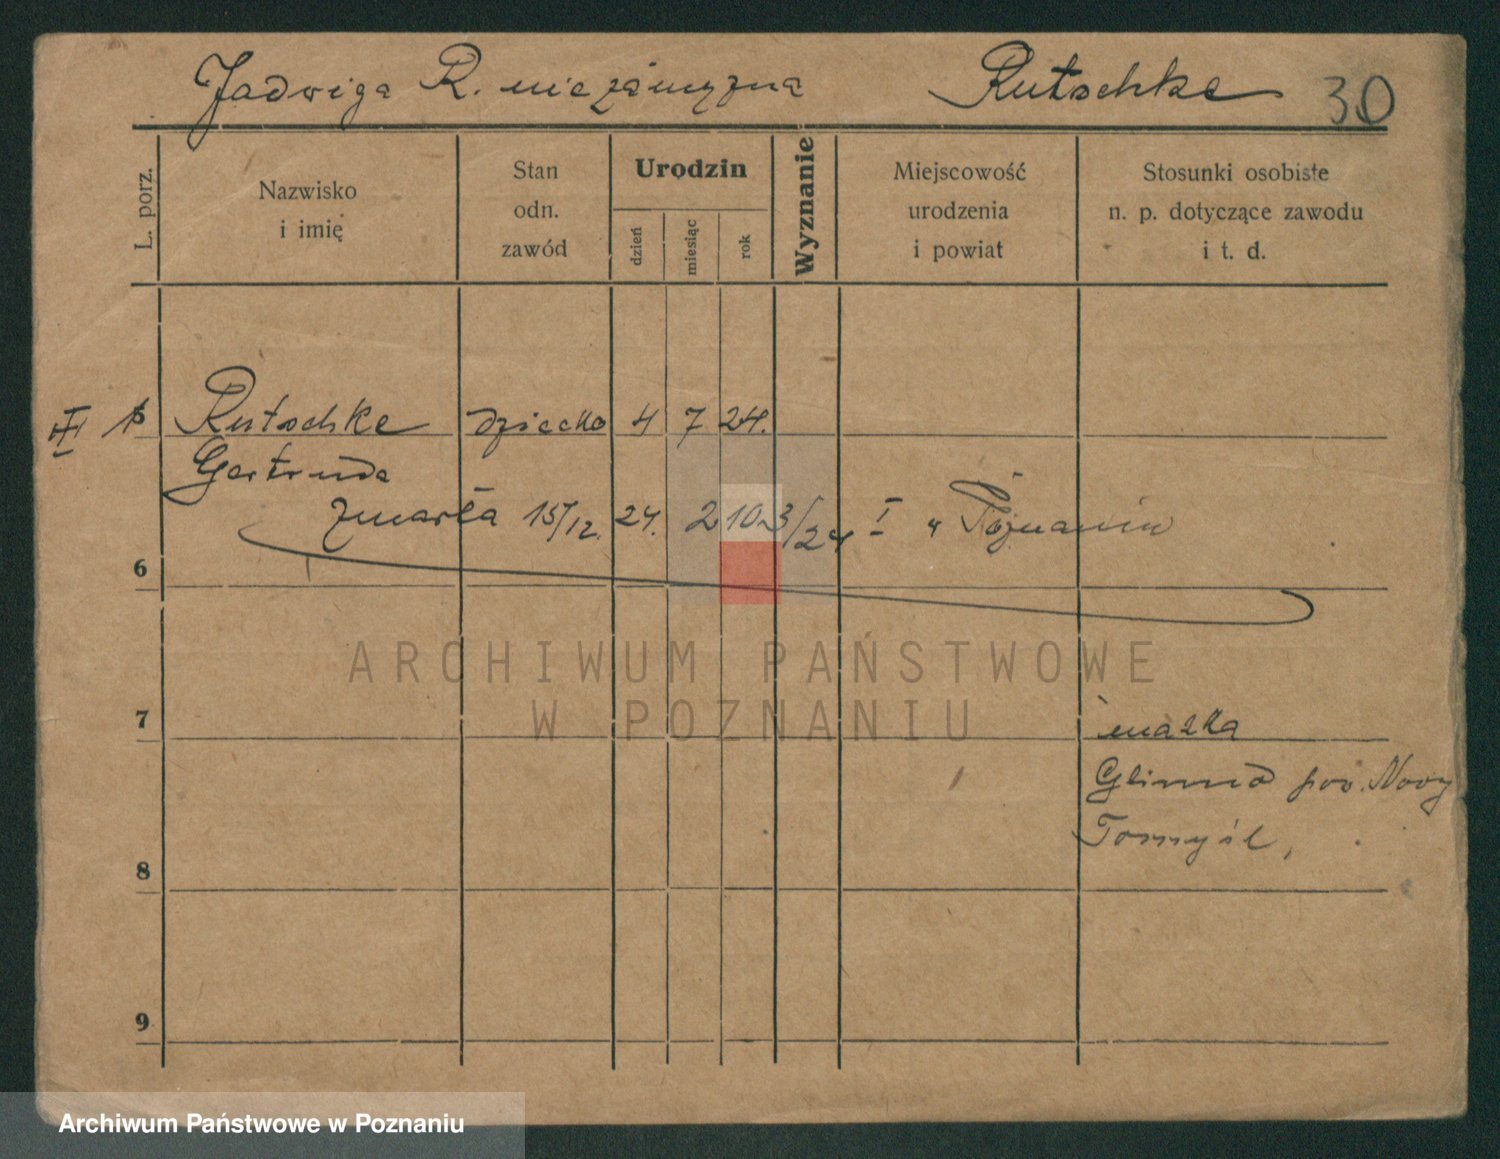 Jadwiga R. niezamężna Rutschke 30
L. porz.
Nazwisko
i imię
Stan
odn.
zawód
Urodzin
dzień
miesiąc
rok
Wyznanie
Miejscowość
urodzenia
i powiat
Stosunki osobiste
n. p. dotyczące zawodu
i t. d.
III 5 Rutschke dziecko 4 7 24.
Gertruda
zmarła 15/12. 24. 2103/24 I w Poznaniu
6
ARCHIWUM PAŃSTWOWE
W POZNANIU
7
matka
Glinno pow. Nowy
Tomyśl,
8
9
Archiwum Państwowe w Poznaniu